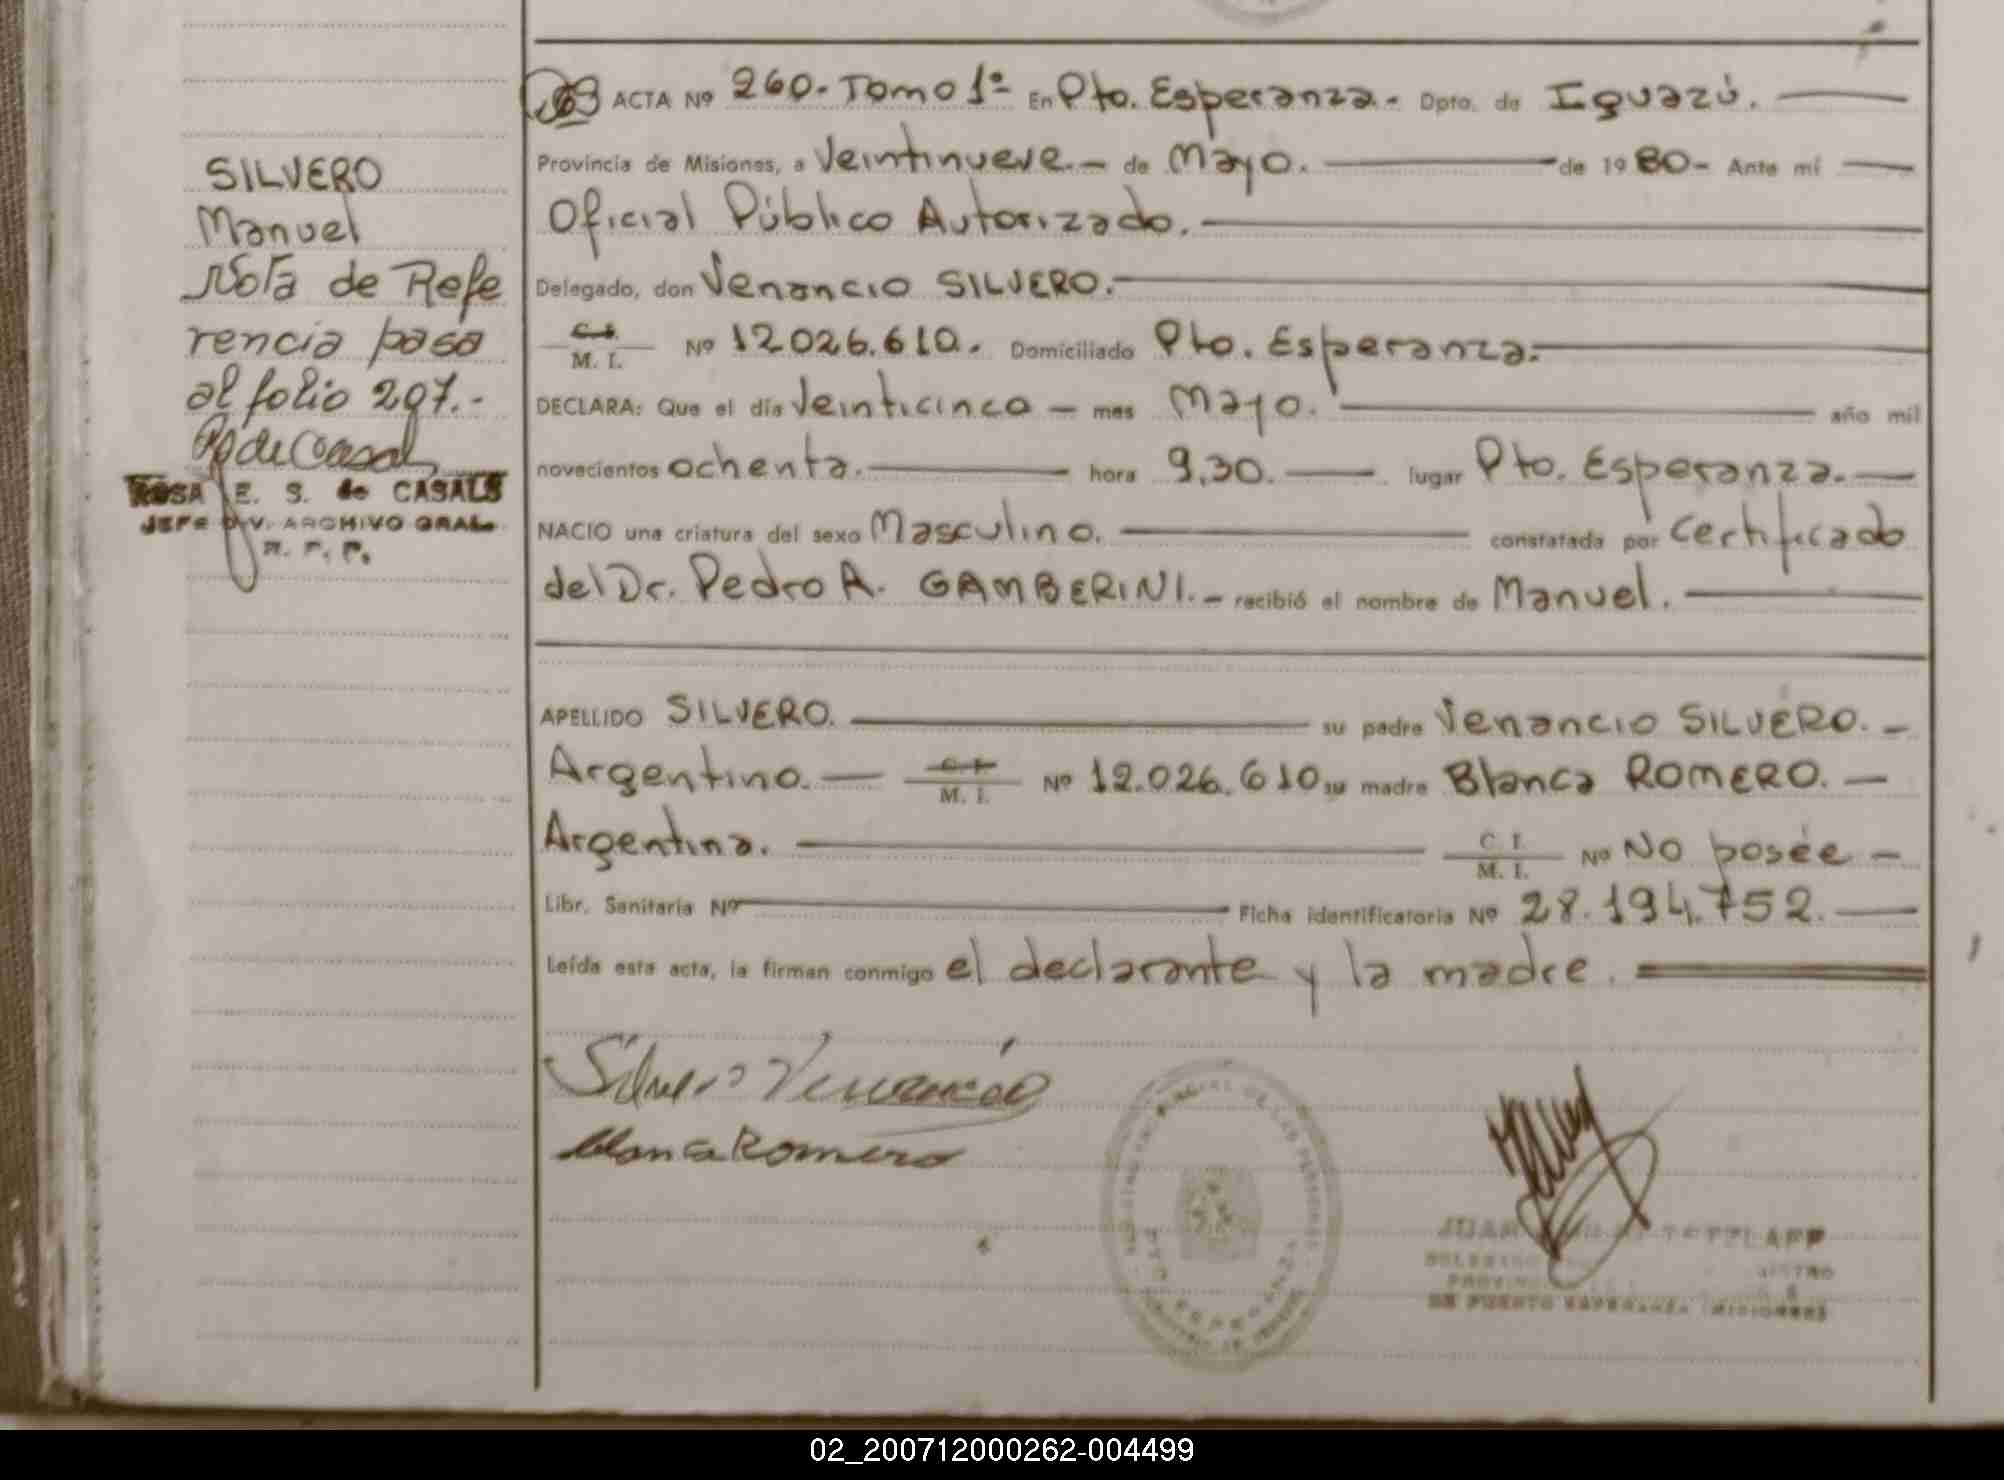 SILVERO
Manuel
Nota de Refe
rencia pasa
al folio 297.-
ROSA E. S. de CASALS
JEFE DIV. ARCHIVO GRAL.
R. P. P.
ACTA Nº 260.- Tomo 1º En Pto. Esperanza.- Dpto. de Iguazú.
Provincia de Misiones, a Veintinueve.- de Mayo. de 1980- Ante mí
Oficial Público Autorizado.
Delegado, don Venancio SILVERO.
C.I.
M. I. Nº 12.026.610. Domiciliado Pto. Esperanza.
DECLARA: Que el día Veinticinco - mes Mayo. año mil
novecientos ochenta. hora 9,30. lugar Pto. Esperanza.
NACIO una criatura del sexo Masculino. constatada por Certificado
del Dr. Pedro A. GAMBERINI.- recibió el nombre de Manuel.
APELLIDO SILVERO. su padre Venancio SILVERO.-
Argentino. C. I.
M. I. Nº 12.026.610 su madre Blanca ROMERO.
Argentina. C. I.
M. I. Nº No posée -
Libr. Sanitaria Nº Ficha identificatoria Nº 28.194.752.
Leída esta acta, la firman conmigo el declarante y la madre.
Silvero Venancio
blanca Romero
JUAN
DE PUERTO ESPERANZA (MISIONES)
02_200712000262-004499